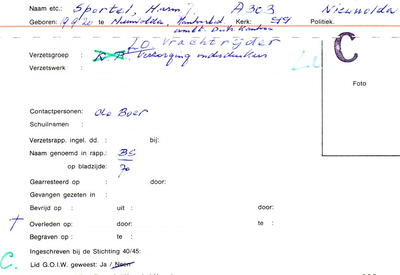 Naam etc.: Sportel, Harm A303 Nieuwolda
Geboren: 19 9 20 te Nieuwolda, Kerk: Politiek.
ambt. Distr. Kantoor
LO Vrachtrijder
Verzetsgroep :
Verzetswerk : Verzorging onderduikers
C
Foto
Contactpersonen: de Boer
Schuilnamen :
Verzetsrapp. ingel. dd. : bij:
Naam genoemd in rapp.: BS
op bladzijde: 70
Gearresteerd op : door:
Gevangen gezeten in :
Bevrijd op : uit : door:
† Overleden op : door: te :
Begraven op : te :
Ingeschreven bij de Stichting 40/45:
C. Lid G.O.I.W. geweest: Ja / Neen